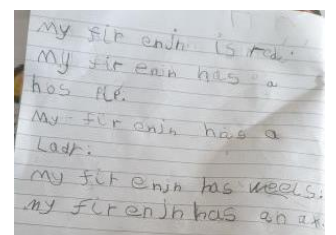 my fir enjn is red.
my fir enin has a
hos PiP.
my fir enin has a
Ladr.
my fir enjn has weels.
my fir enjn has an ax.